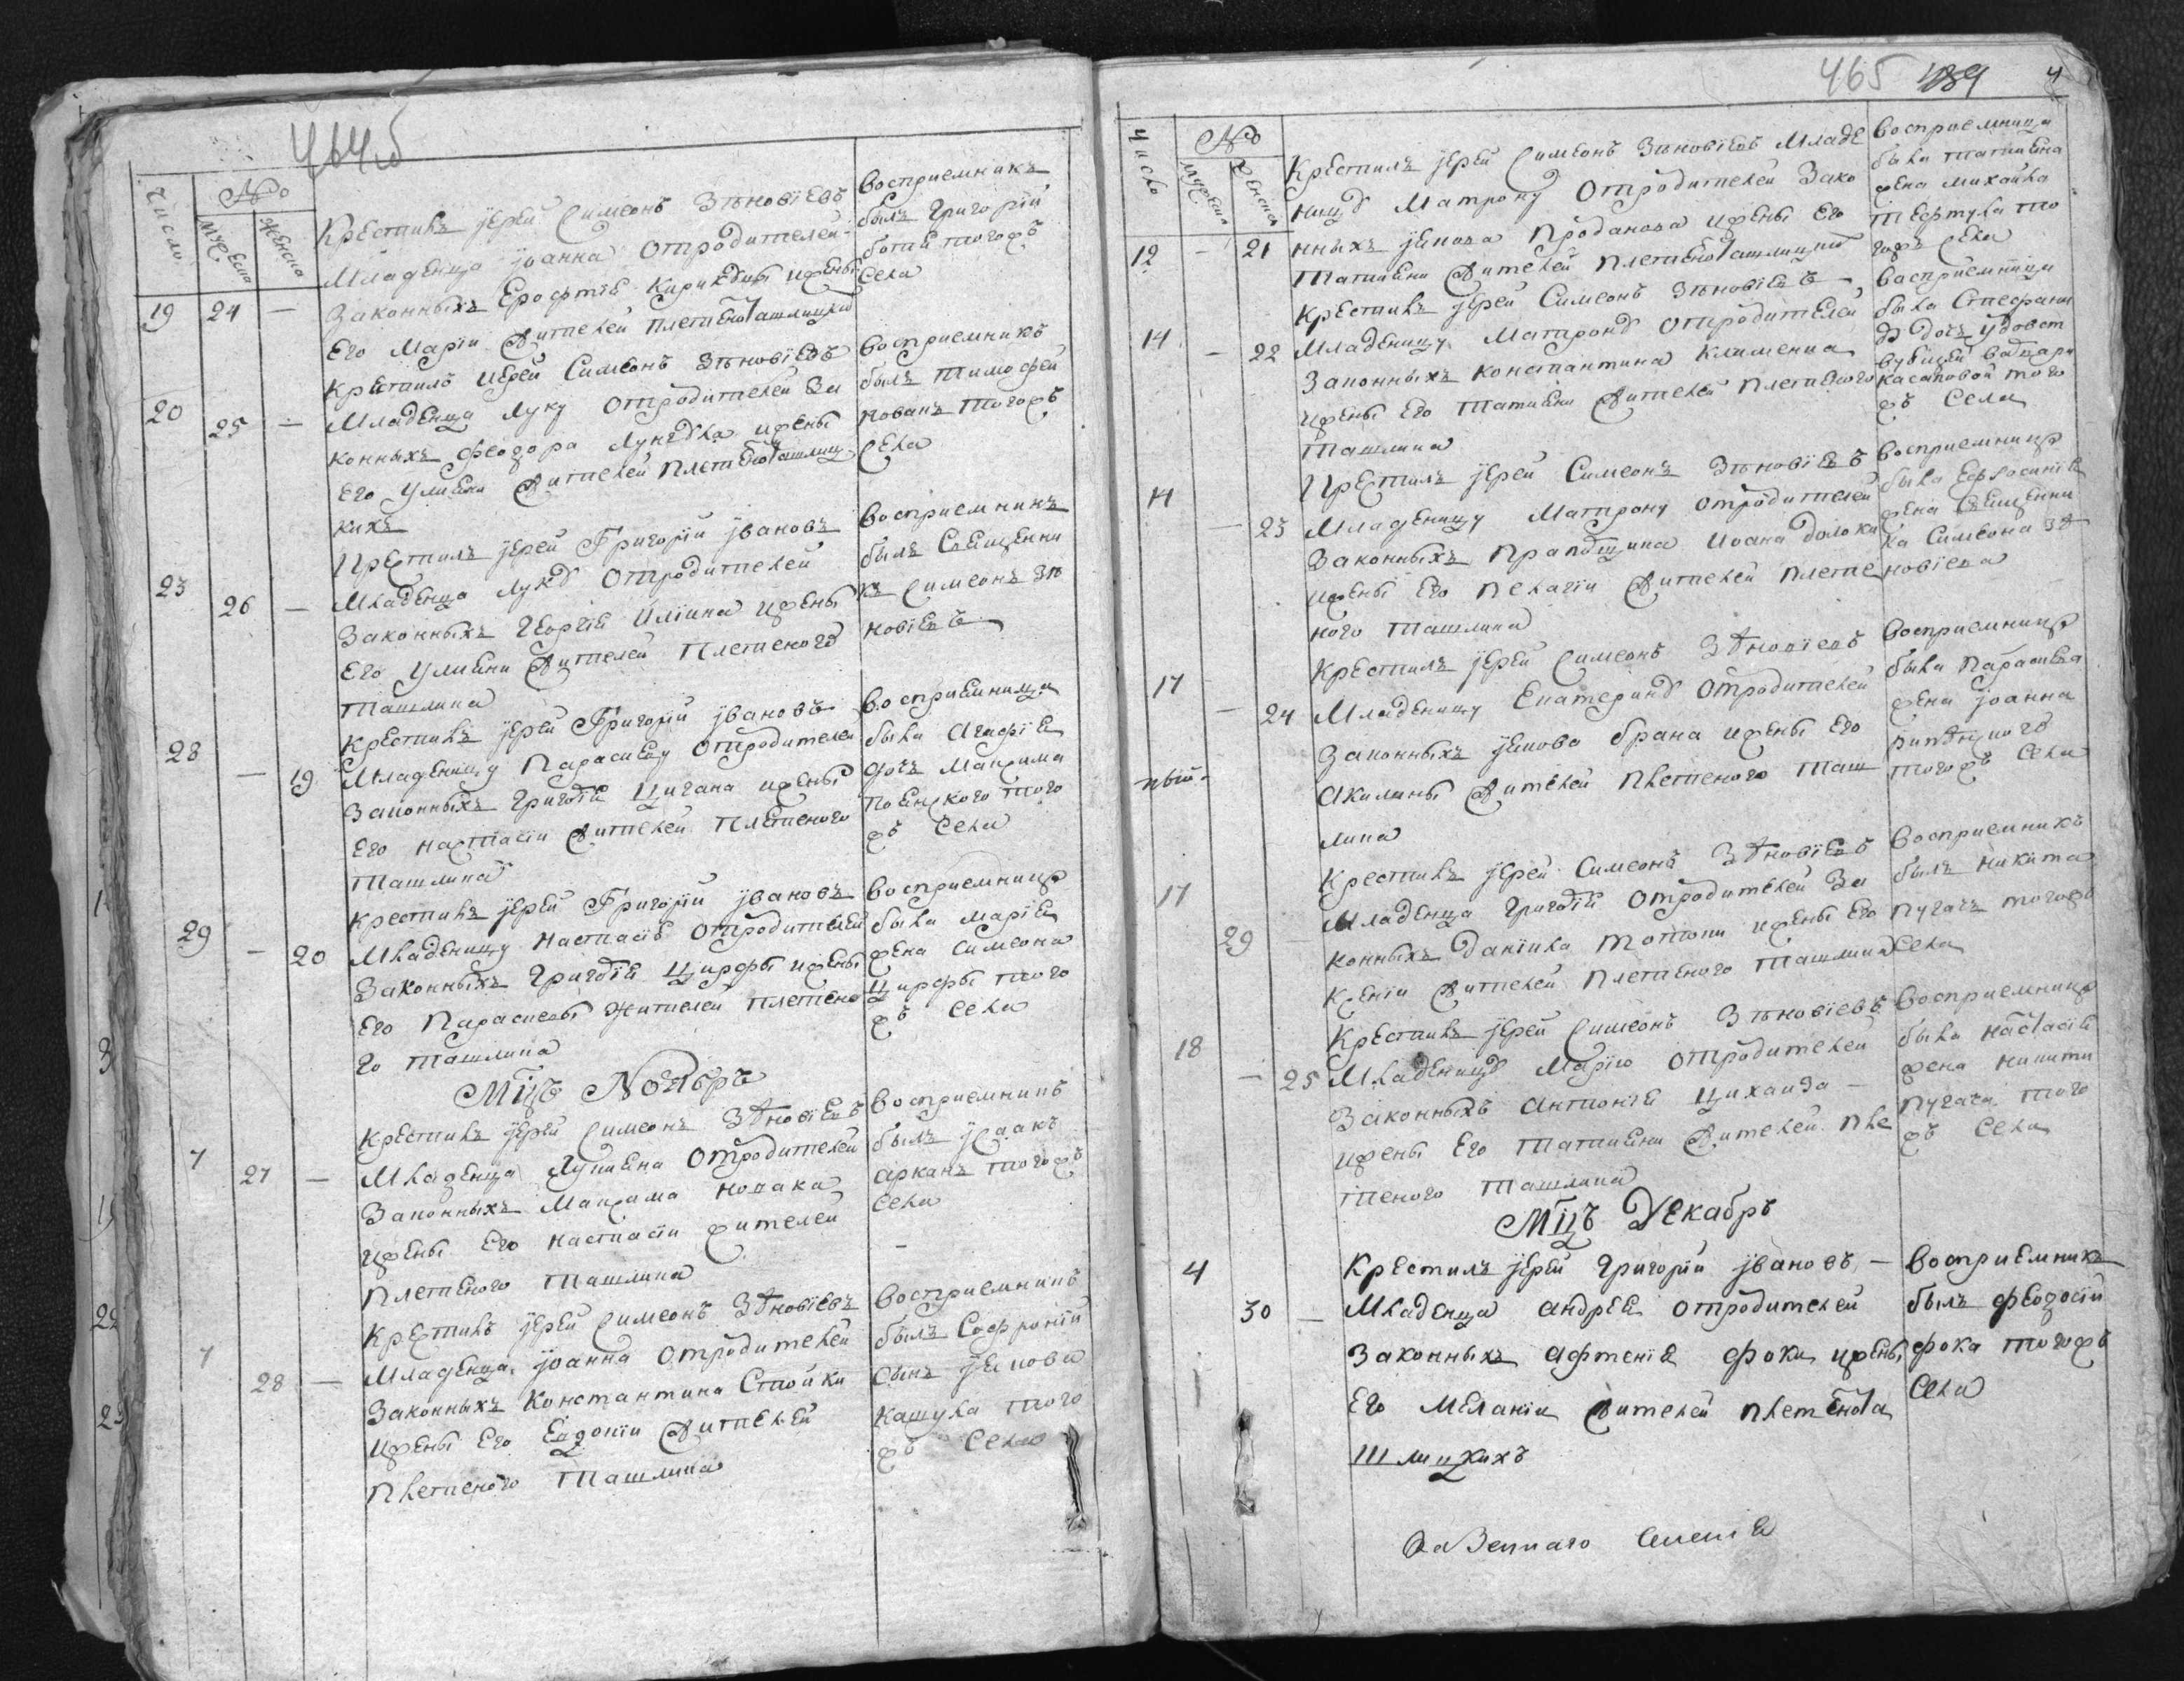 464об
Число
№
Мужеска
Женска
Крестилъ іерей Симеонъ Зѣновіевъ
Младенца Іоанна отродителей
19 24 — Законныхъ Ерофтія ижены
Его Маріи жителей плетеноташлицкихъ
Восприемникъ
былъ Григорій
тогожъ
Села
Крестилъ иерей Симеонъ Зѣновіевъ
20 25 — Младенца Луку отродителей За
конныхъ Феодора ижены
Его Улияни жителей плетеноташлиц
кихъ
Восприемникъ
былъ Тимофей
тогожъ
Села
Крестилъ іерей Григорій Івановъ
23 26 — Младенца Луку отродителей
Законныхъ Георгія Иліина ижены
Его Улияни жителей Плетеного
Ташлика
Восприемникъ
былъ Священни
къ Симеонъ Зѣ
новіевъ
Крестилъ іерей Григорій Івановъ
28 — 19 Младеницу Параскеву отродителей
Законныхъ Григорія Цигана ижены
Его Настасіи жителей плетеного
Ташлика
Восприемница
была Агафія
дочь Максима
того
жъ Села
Крестилъ іерей Григорій Івановъ
29 — 20 Младеницу Настасію отродителей
Законныхъ Григорія Цирфы ижены
Его Параскевы жителей плетено
го Ташлика
Восприемница
была Марія
жена Симеона
Цирфы того
жъ Села
Мцъ Ноябръ
Крестилъ іерей Симеонъ Зѣновіевъ
7 27 — Младенца Лукияна отродителей
Законныхъ Максима Новака
ижены Его Настасіи жителей
Плетеного Ташлика
Восприемникъ
былъ Ісаакъ
Арканъ тогожъ
Села
Крестилъ іерей Симеонъ Зѣновіевъ
7 28 — Младенца Іоанна отродителей
Законныхъ Константина Стойки
ижены Его Евдокіи жителей
Плетеного Ташлика
Восприемникъ
былъ Софроній
Сынъ Іякова
Кашула того
жъ Села
465 489 4
Число
№
Мужеска
Женска
Крестилъ іерей Симеонъ Зѣновіевъ Младе
ницу Матрону отродителей Зако
12 — 21 нныхъ Іякова Проданова ижены Его
Татияни жителей плетеноташлицкихъ
Восприемница
была Татияна
жена Михайла
того
жъ Села
Крестилъ іерей Симеонъ Зѣновіевъ —
14 — 22 Младеницу Матрону отродителей
Законныхъ Константина Клименка
ижены Его Татияни жителей Плетеного
Ташлика
Восприемница
была Стефани
да дочь удовст
вующей
того
жъ Села
Крестилъ іерей Симеонъ Зѣновіевъ
14 — 23 Младеницу Матрону отродителей
Законныхъ Прапорщика Иоана
ижены Его Пелагіи жителей плете
ного Ташлика
Восприемница
была Ефросинія
жена Священни
ка Симеона Зѣ
новіева
Крестилъ іерей Симеонъ Зѣновіевъ
17 — 24 Младеницу Екатерину отродителей
Законныхъ Іякова ижены Его
Акилины жителей Плетеного Таш
лика
Восприемница
была Параскева
жена Іоанна
тогожъ Села
Крестилъ іерей Симеонъ Зѣновіевъ
17 29 Младенца Григорія отродителей За
конныхъ Даніила ижены Его
Ксеніи жителей Плетеного Ташлика
Восприемникъ
былъ Никита
Пугачъ тогожъ
Села
Крестилъ іерей Симеонъ Зѣновіевъ
18 — 25 Младеницу Марію отродителей
Законныхъ Антонія —
ижены Его Татияни жителей Пле
теного Ташлика
Восприемница
была Настасія
жена Никити
Пугача того
жъ Села
Мцъ Декабръ
4 Крестилъ іерей Григорій Івановъ —
30 — Младенца Андрея отродителей
Законныхъ Афтенія Фоки ижены
Его Меланіи жителей плетенота
шлицкихъ
Восприемникъ
былъ Феодосій
Фока тогожъ
Села